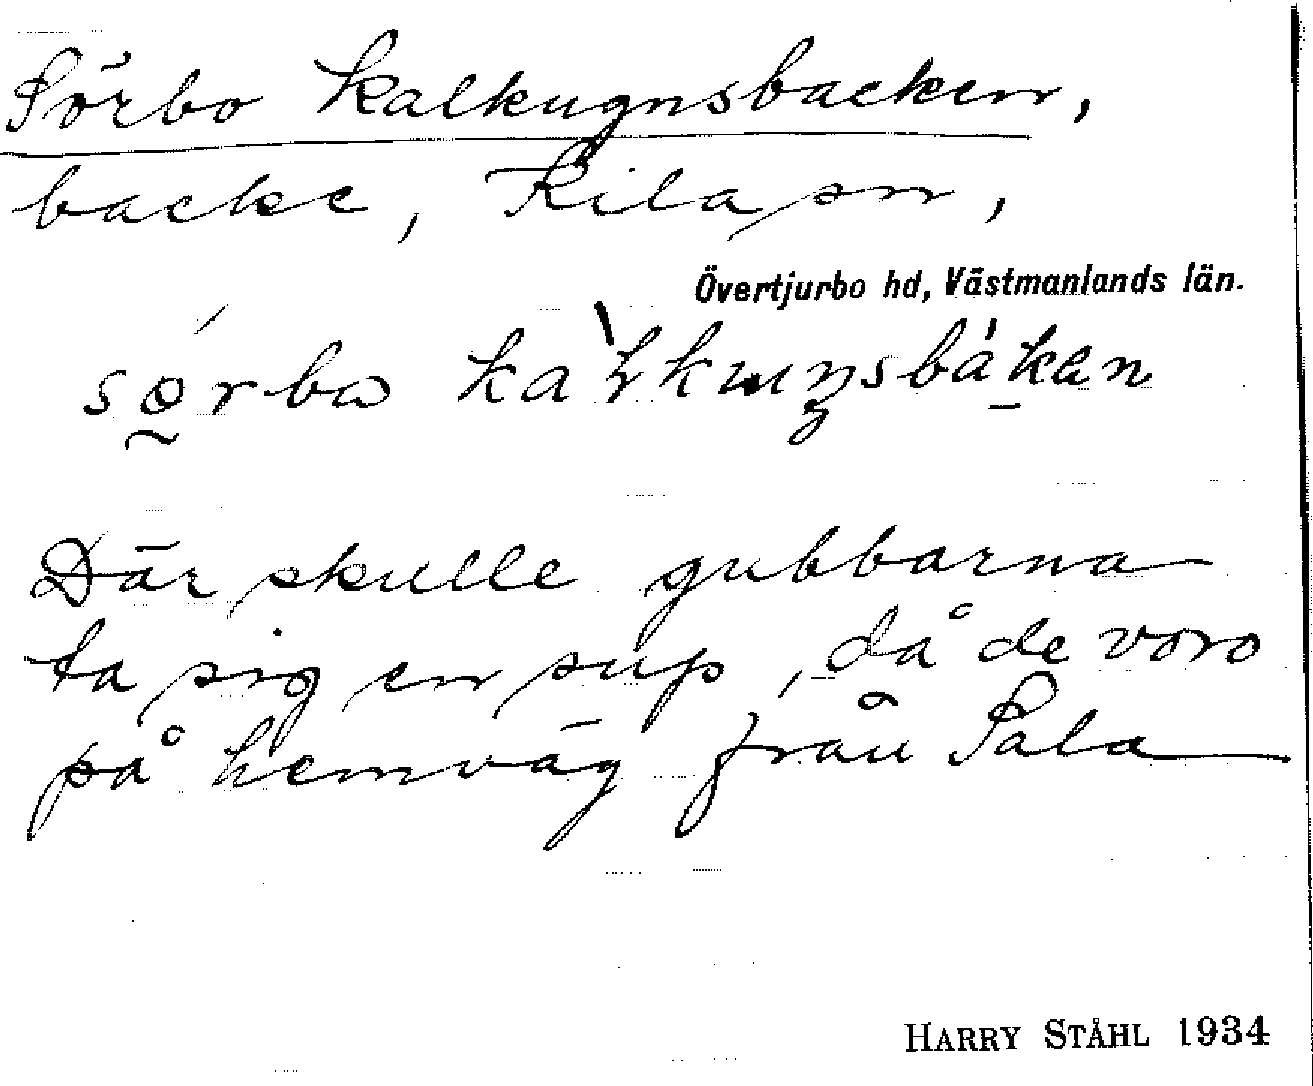 Sörbo Kalkugnsbacken,
backe, Kila sn,
Övertjurbo hd, Västmanlands län.
Där skulle gubbarna
ta sig en sup, då de voro
på hemväg från Sala
HARRY STÅHL 1934